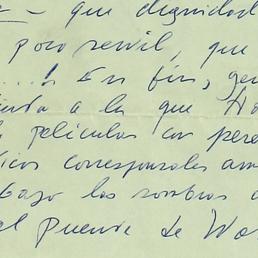 que dignidad
poco servil, que
... En fin, gen
a la que Ho
películas con pere
icos corresponsales am
bajo las sombras d
el Puente de Wa